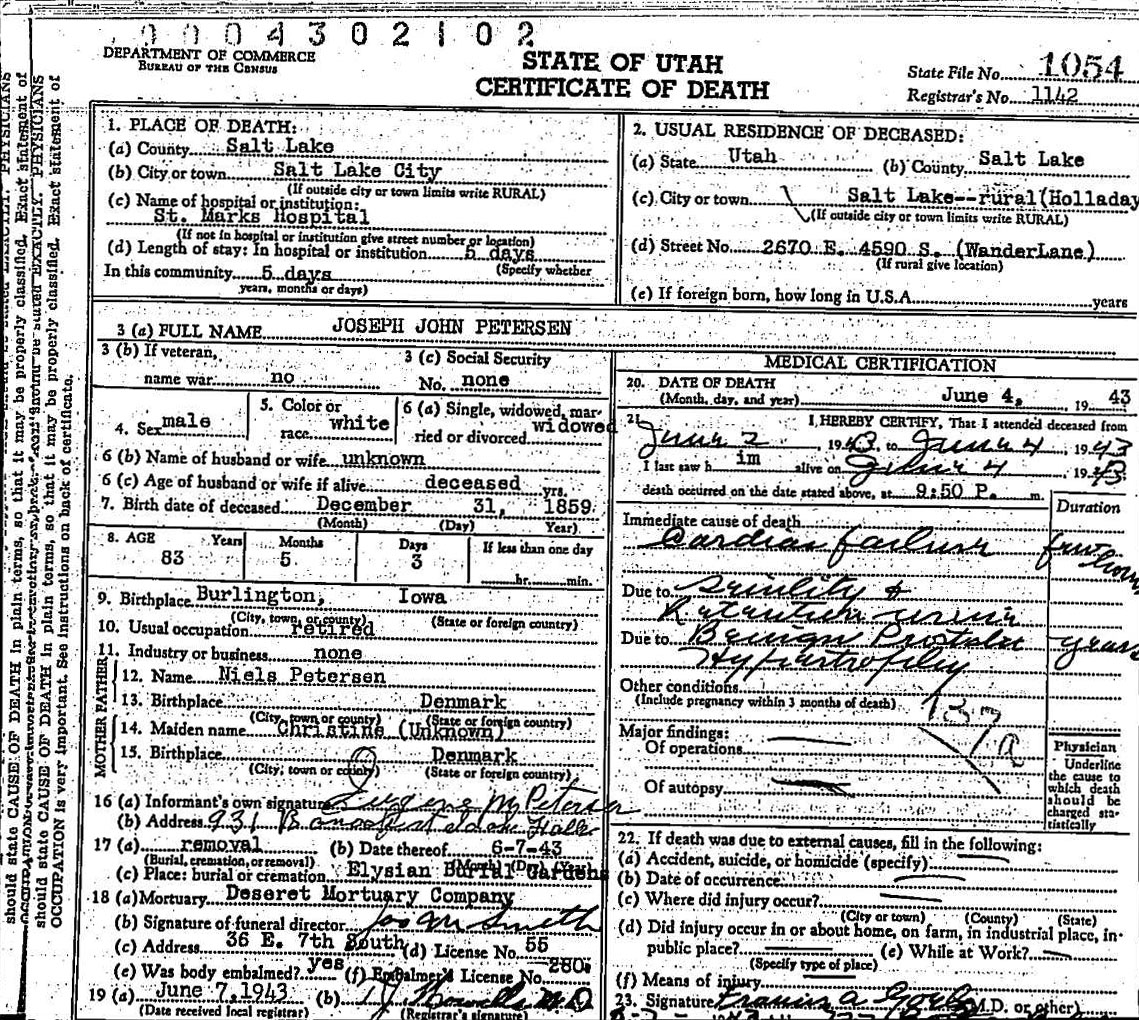 0004302102
DEPARTMENT OF COMMERCE
BUREAU OF THE CENSUS
STATE OF UTAH
CERTIFICATE OF DEATH
State File No. 1054
Registrar's No. 1142
1. PLACE OF DEATH:
(a) County Salt Lake
(b) City or town Salt Lake City
(If outside city or town limits write RURAL)
(c) Name of hospital or institution:
St. Marks Hospital
(If not in hospital or institution give street number or location)
(d) Length of stay: In hospital or institution 5 days
(Specify whether
In this community 5 days
years, months or days)
2. USUAL RESIDENCE OF DECEASED:
(a) State Utah (b) County Salt Lake
(c) City or town Salt Lake--rural(Holladay
(If outside city or town limits write RURAL)
(d) Street No. 2670 E. 4590 S. (WanderLane)
(If rural give location)
(e) If foreign born, how long in U.S.A. years
3 (a) FULL NAME JOSEPH JOHN PETERSEN
3 (b) If veteran,
name war no
3 (c) Social Security
No. none
4. Sex male
5. Color or
race white
6 (a) Single, widowed, mar-
ried or divorced widowed
6 (b) Name of husband or wife unknown
6 (c) Age of husband or wife if alive deceased yrs.
7. Birth date of deceased December 31, 1859
(Month) (Day) Year)
8. AGE Years Months Days If less than one day
83 5 3 hr. min.
9. Birthplace Burlington, Iowa
(City, town, or county) (State or foreign country)
10. Usual occupation retired
11. Industry or business none
FATHER
12. Name Niels Petersen
13. Birthplace Denmark
(City, town or county) (State or foreign country)
MOTHER
14. Maiden name Christine (Unknown)
15. Birthplace Denmark
(City, town or county) (State or foreign country)
16 (a) Informant's own signature Eugene M Petersen
(b) Address 931 Idaho Falls
17 (a) removal (b) Date thereof 6-7-43
(Burial, cremation, or removal) (Month) (Day) (Year)
(c) Place: burial or cremation Elysian Burial Gardens
18 (a) Mortuary Deseret Mortuary Company
(b) Signature of funeral director Jos M Smith
(c) Address 36 E. 7th South (d) License No. 55
(e) Was body embalmed? yes (f) Embalmer's License No. 280
19 (a) June 7, 1943 (b) M.D.
(Date received local registrar) (Registrar's signature)
MEDICAL CERTIFICATION
20. DATE OF DEATH
(Month, day, and year) June 4, 19 43
21. I HEREBY CERTIFY, That I attended deceased from
June 2, 1943 to June 4, 1943
I last saw h im alive on June 4 1943
death occurred on the date stated above, at 9:50 P. m.
Duration
Immediate cause of death
Cardiac failure few hours
Due to Senility &
Retention urine
Due to Benign Prostatic years
Hypertrophy
Other conditions
(Include pregnancy within 3 months of death)
137 a
Major findings:
Of operations
Of autopsy
Physician
Underline
the cause to
which death
should be
charged sta-
tistically
22. If death was due to external causes, fill in the following:
(a) Accident, suicide, or homicide (specify)
(b) Date of occurrence
(c) Where did injury occur?
(City or town) (County) (State)
(d) Did injury occur in or about home, on farm, in industrial place, in
public place? (e) While at Work?
(Specify type of place)
(f) Means of injury
23. Signature Francis A. M.D. or other)
should state CAUSE OF DEATH in plain terms, so that it may be properly classified. Exact statement of
OCCUPATION is very important. See instructions on back of certificate.